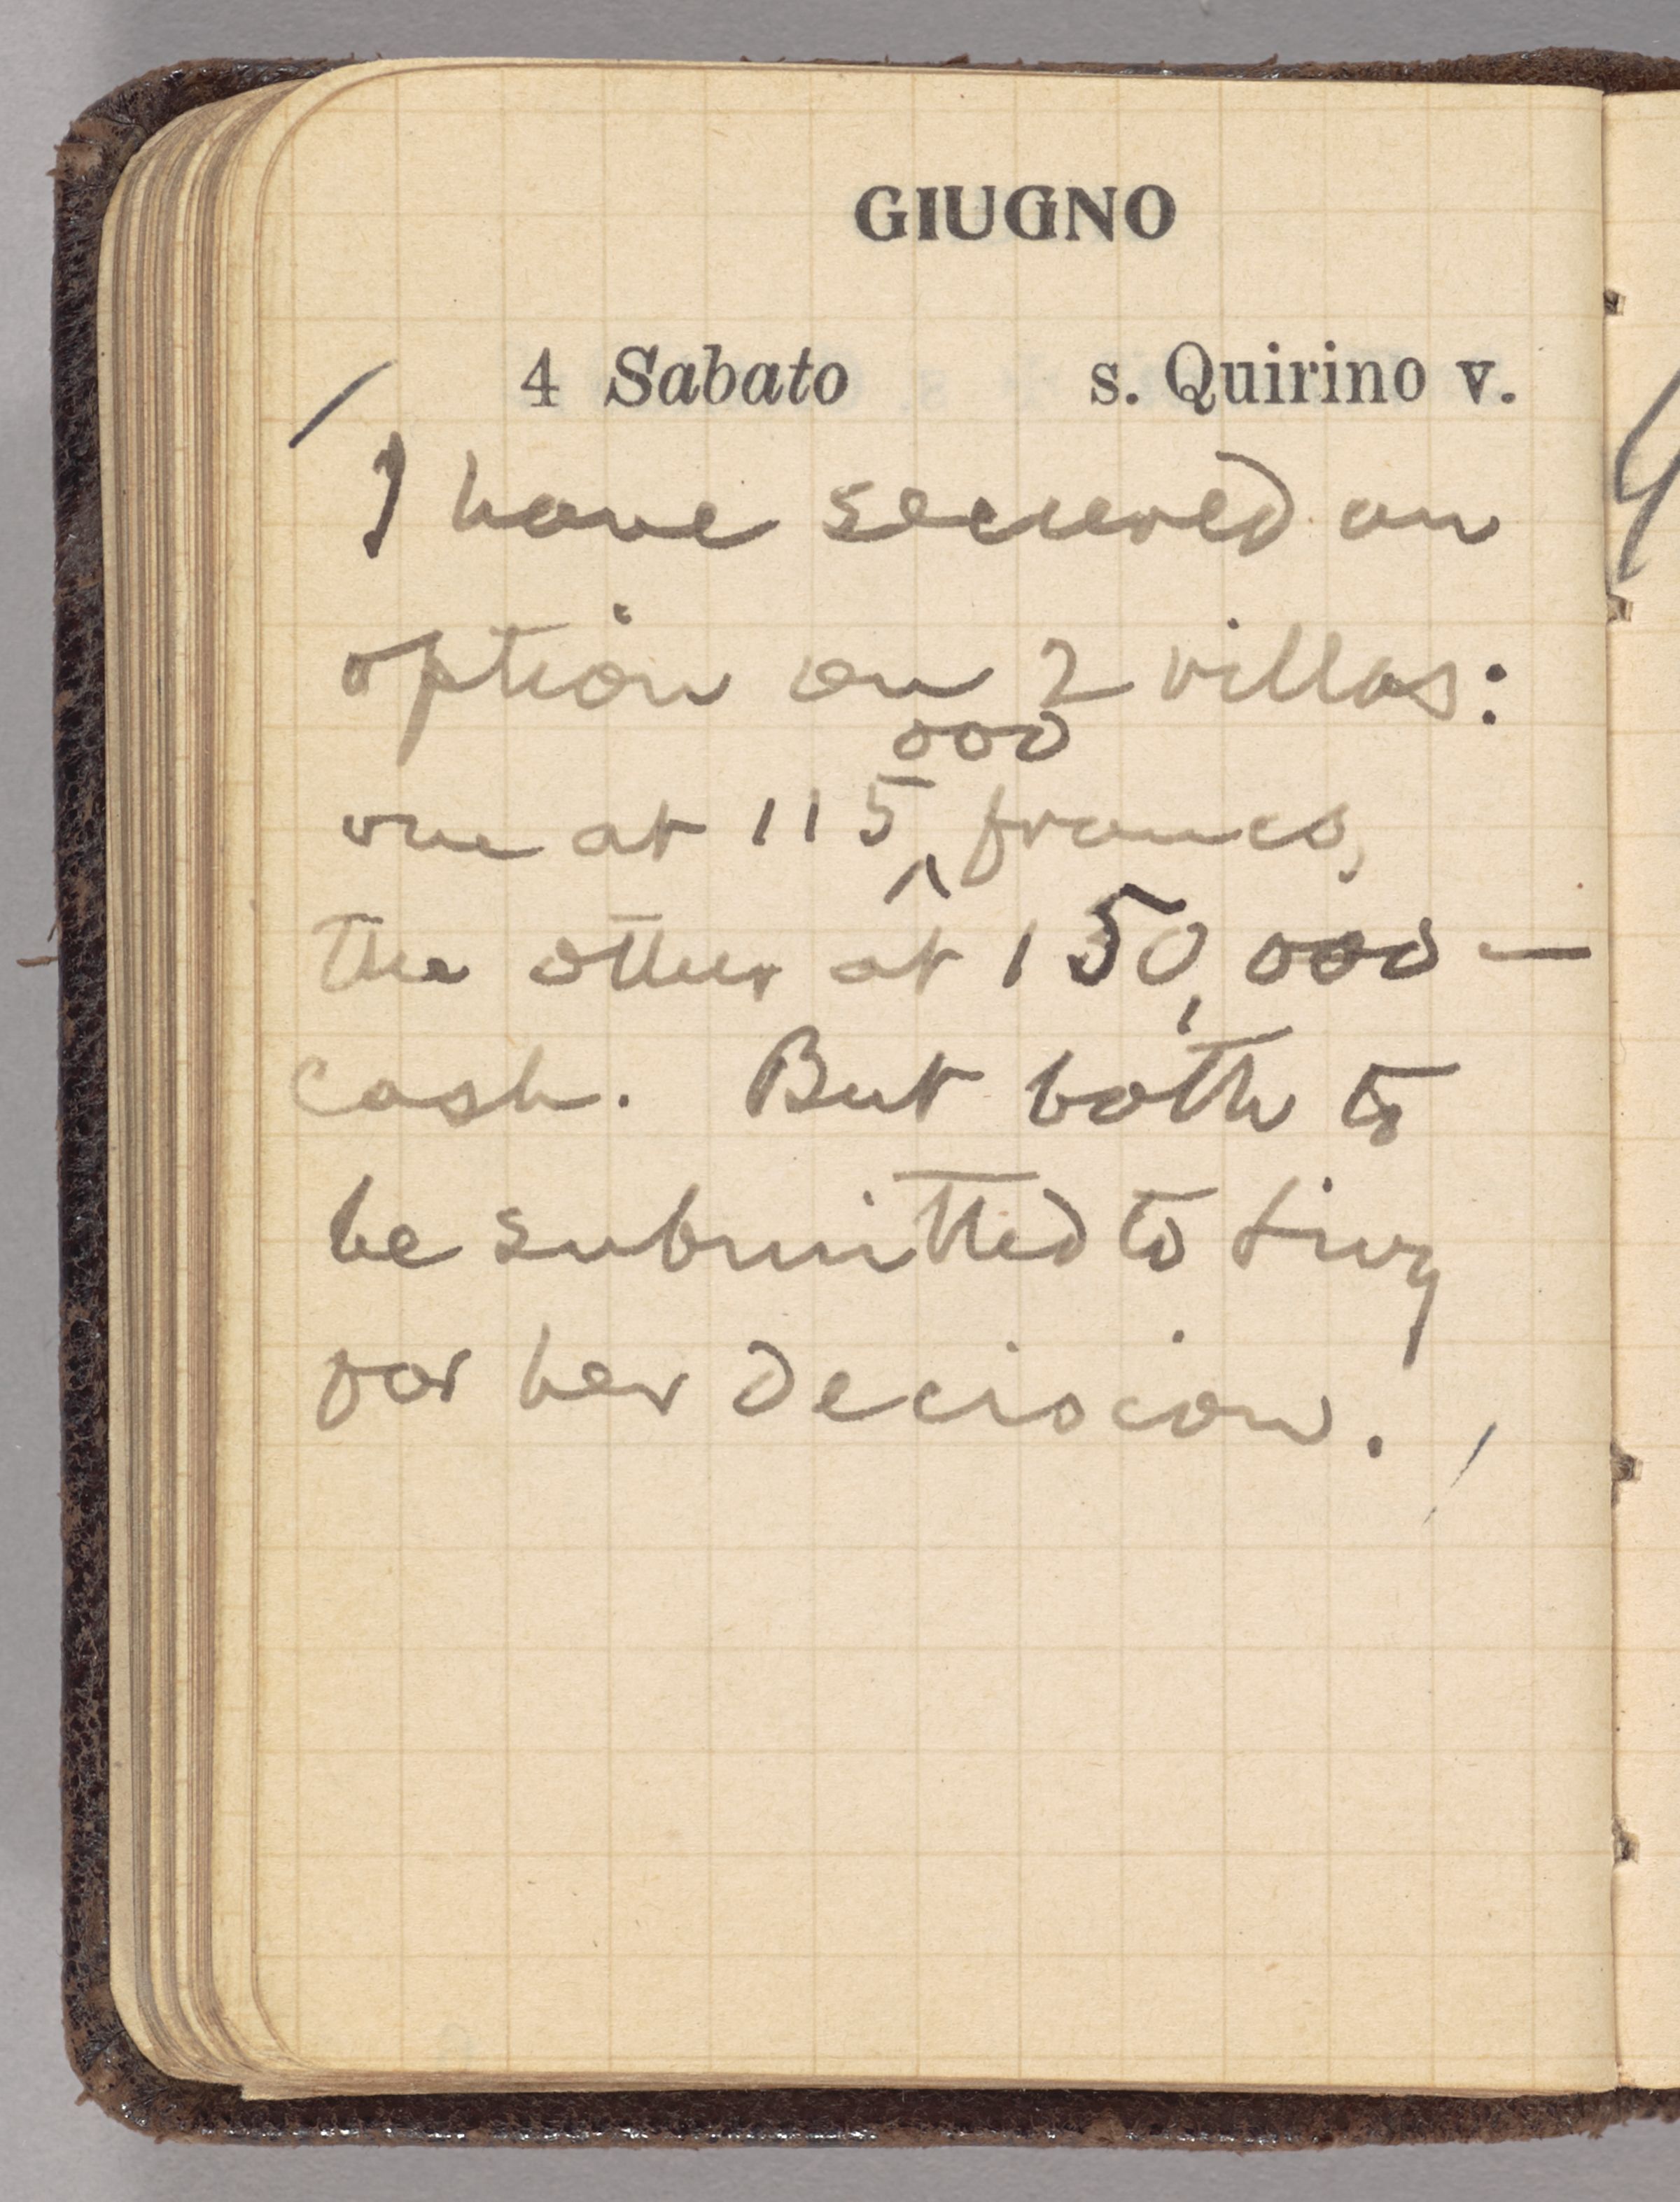 GIUGNO
4 Sabato s. Quirino v.
I have secured an
option on 2 villas:
000
one at 115 ^ francs,
the other at 150,000 —
cash. But both to
be submitted to Livy
for her decision.